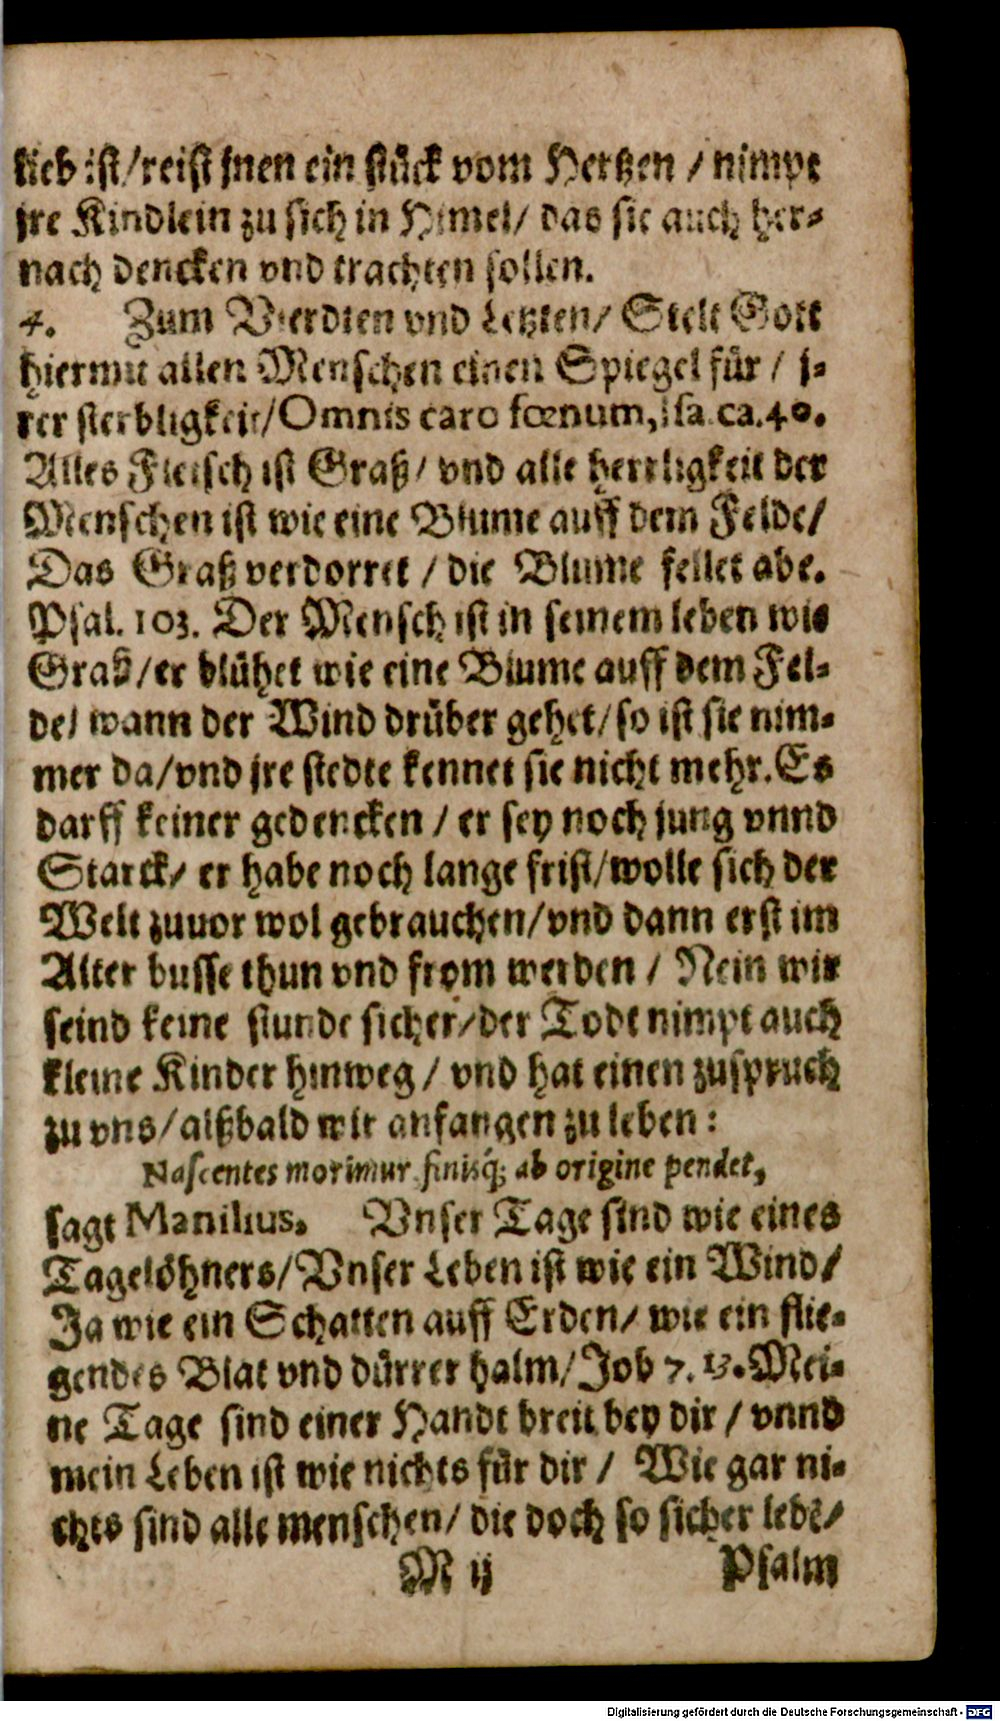 lieb ist/reist jnen ein stück vom Hertzen / nimpt
jre Kindlein zu sich in Himel/ das sie auch her-
nach dencken vnd trachten sollen.
4. Zum Vierdten vnd Letzten/ Stelt Gott
hiermit allen Menschen einen Spiegel für / j-
rer sterbligkeit/Omnis caro fœnum, Isa. ca. 40.
Alles Fleisch ist Graß/ vnd alle herrligkeit der
Menschen ist wie eine Blume auff dem Felde/
Das Graß verdorret / die Blume fellet abe.
Psal. 103. Der Mensch ist in seinem leben wie
Graß/er blühet wie eine Blume auff dem Fel-
de/ wann der Wind drüber gehet/so ist sie nim-
mer da/vnd jre stedte kennet sie nicht mehr. Es
darff keiner gedencken / er sey noch jung vnnd
Starck/ er habe noch lange frist/wolle sich der
Welt zuuor wol gebrauchen/vnd dann erst im
Alter busse thun vnd from werden / Nein wir
seind keine stunde sicher/der Todt nimpt auch
kleine Kinder hinweg / vnd hat einen zuspruch
zu vns/alßbald wir anfangen zu leben:
Nascentes morimur finisq́; ab origine pendet,
sagt Manilius. Vnser Tage sind wie eines
Tagelöhners/Vnser Leben ist wie ein Wind/
Ja wie ein Schatten auff Erden/ wie ein flie-
gendes Blat vnd dürrer halm/Job 7. 13. Mei-
ne Tage sind einer Handt breit bey dir / vnnd
mein Leben ist wie nichts für dir / Wie gar ni-
chts sind alle menschen/ die doch so sicher lebē/
M ij Psalm
Digitalisierung gefördert durch die Deutsche Forschungsgemeinschaft - DFG